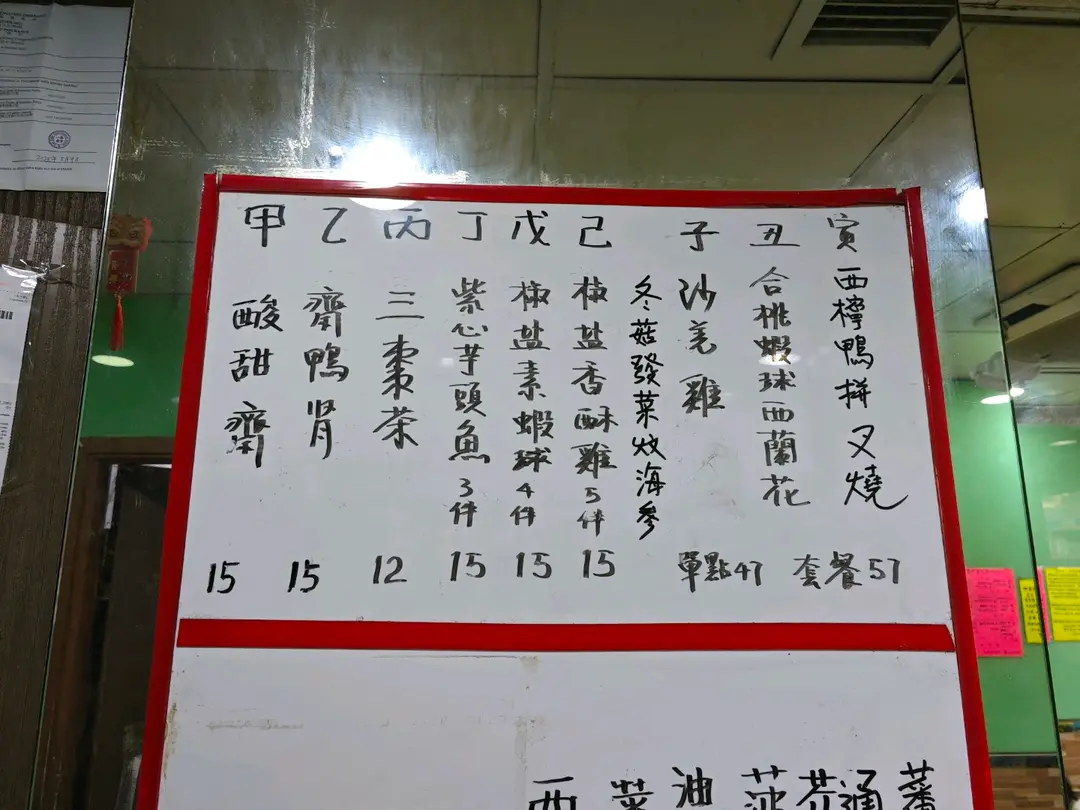 甲 酸甜齋 15
乙 齋鴨肾 15
丙 三棗茶 12
丁 紫心芋頭魚3件 15
戊 椒盐素蝦球4件 15
己 椒盐香酥雞5件 15
冬菇發菜炆海參
子 沙羌雞
丑 合桃蝦球西蘭花
寅 西檸鴨拼叉燒
單點47 套餐57
油
通